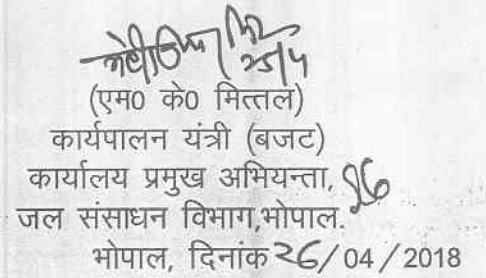 25/4
(एम0 के0 मित्तल)
कार्यपालन यंत्री (बजट)
कार्यालय प्रमुख अभियन्ता,
जल संसाधन विभाग,भोपाल.
भोपाल, दिनांक 26/04/2018